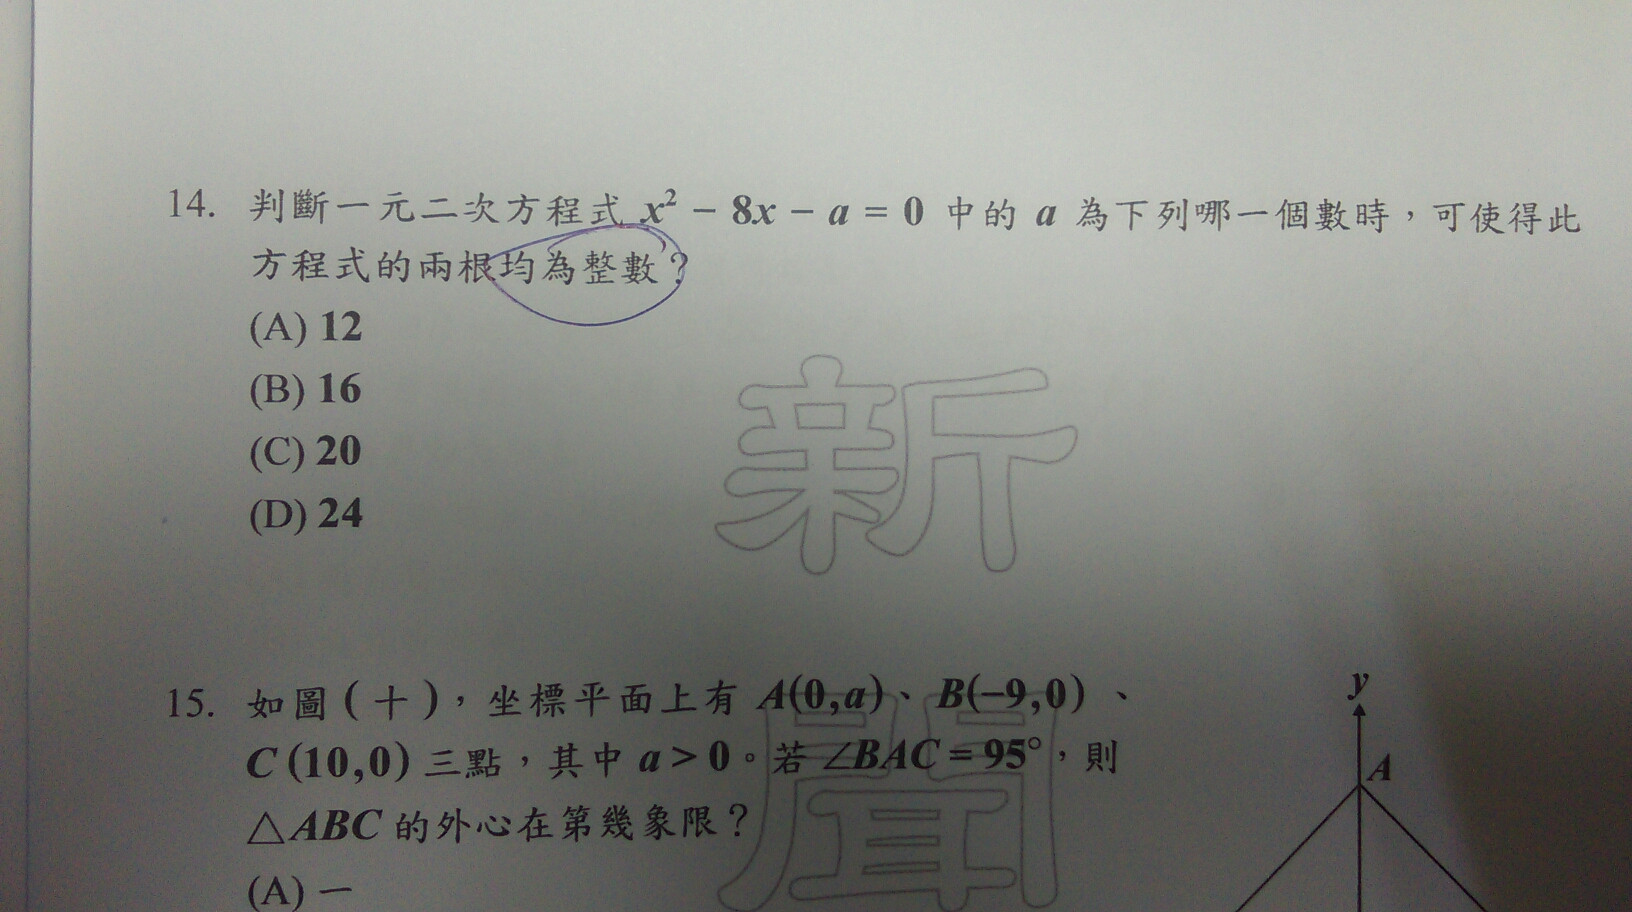 14. 判斷一元二次方程式 x² − 8x − a = 0 中的 a 為下列哪一個數時，可使得此
方程式的兩根均為整數？
(A) 12
(B) 16
(C) 20
(D) 24
新
15. 如圖(十)，坐標平面上有 A(0,a)、B(−9,0)、
C(10,0) 三點，其中 a > 0。若 ∠BAC = 95°，則
△ABC 的外心在第幾象限？
(A) 一
y
A